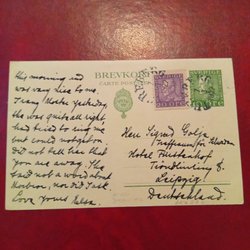 BREVKORT
CARTE POSTALE
this morning and
was very nice to me.
I rang Mother yesterday,
she was quite all right,
had tried to ring me
but could not get on.
Did not tell her that
you are away. She
said not a word about
nor did Jack.
Love yours
Herr Sigurd
Hotel Fürstenhof
Leipzig!
Deutschland.